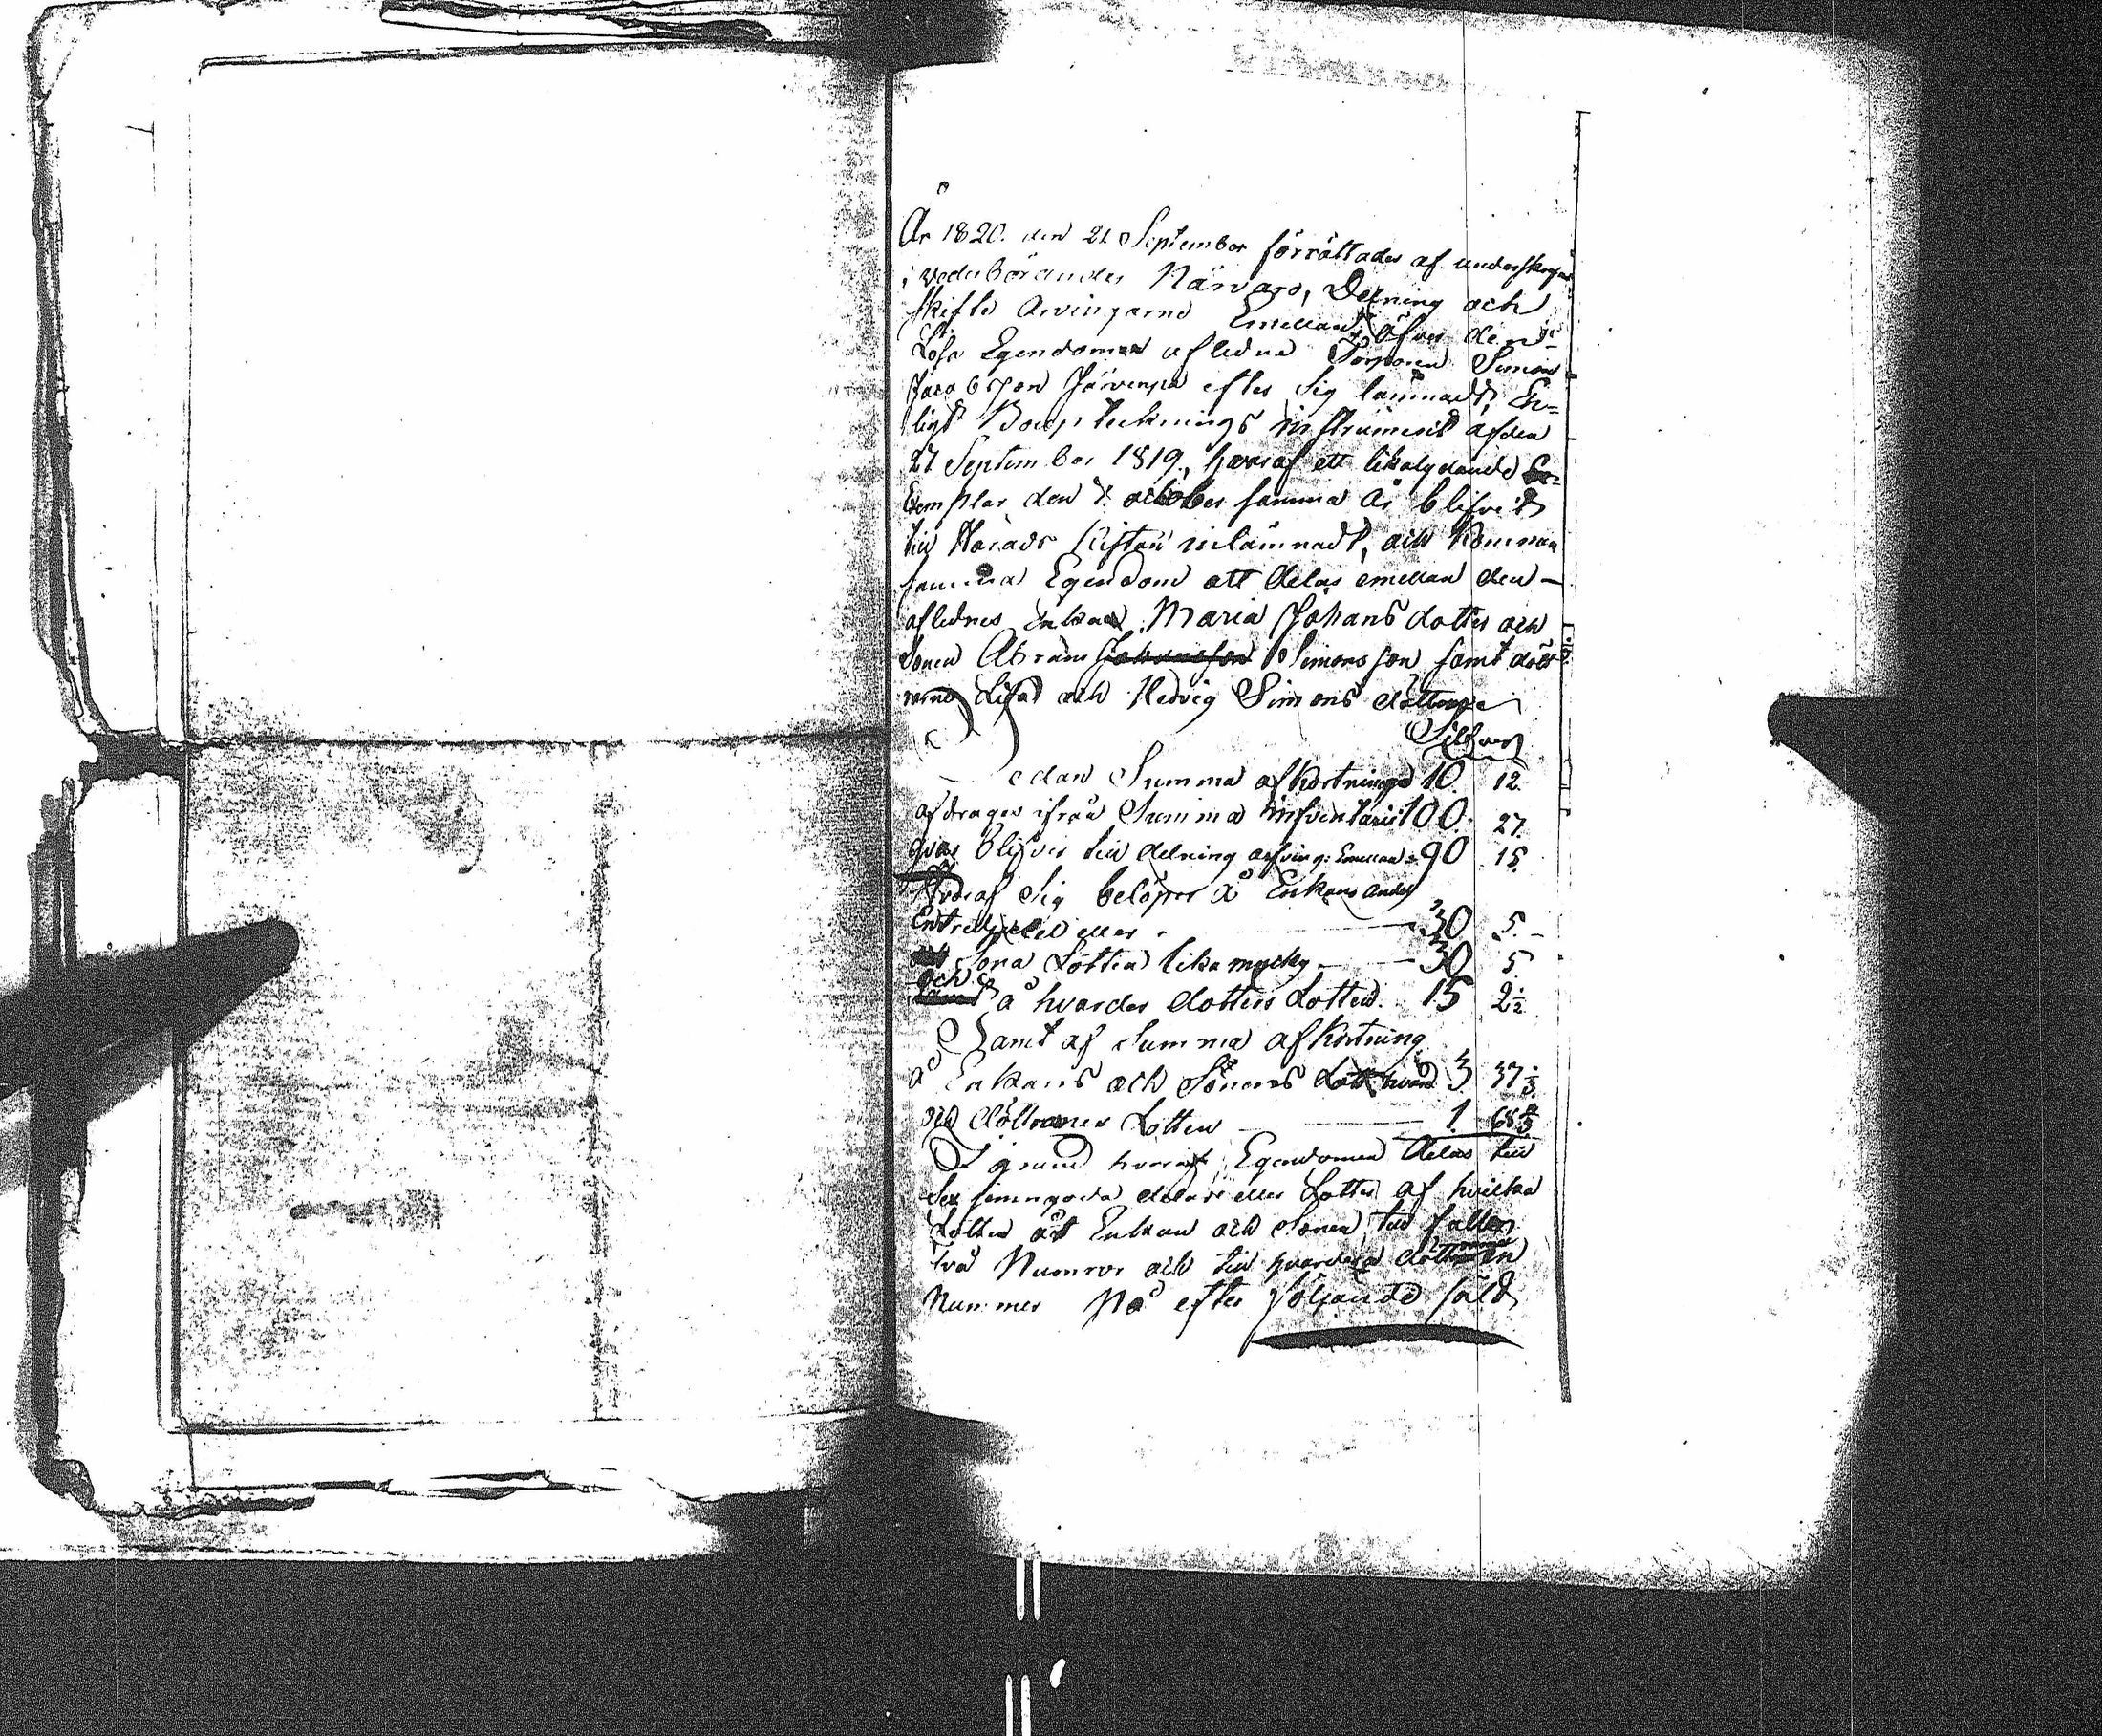 År 1820. den 21 September förrättades af undertecknad
i vederbörandes Närvaro, Delning och
skifte Arvingarne Emellan, öfver den
Lösa Egendomen aflidne Torparen Simon
Jacobsson Järvenpä efter sig lämnadt, En=
ligt Bouptecknings instrument af den
27 September 1819, hvaraf ett likalydande
Exemplar den 7. october samma År blifvit
till Härads Kistan inlämnadt, och kommer
samma Egendom att delas emellan den
aflidnes Enka Maria Johans dotter och
Sonen Abram Johansson Simonsson samt dött
rarne Lisa och Hedvig Simons döttrar
Silfver
edan Summa afkortningen 10. 12.
afdrages ifrån Summa inventarii 100. 27.
qvar blifver till delning arfving: Emellan = 90 15.
Hvaraf sig belöper å Enkans andel
En tredjedel eller 30 5.
Sona Lotten lika mycky 30 5
och
samt å hvarder dotters Lotten. 15 2 1/2
Samt af Summa afkortning
å Enkans och Sonens Lott hvard 3 37 1/3
och döttrarnes Lotten 1 68 2/3
I grund hvaraf Egendomen delas till
Sex jemngoda delar eller Lotter af hvilka
Lotter åt Enkan och Sonen till faller
två Numror och till hvardera dottren en
Nummer På efter följande sätt